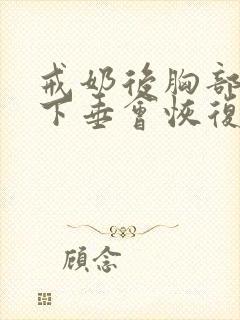 戒奶後胸部
下垂會恢復
顧念